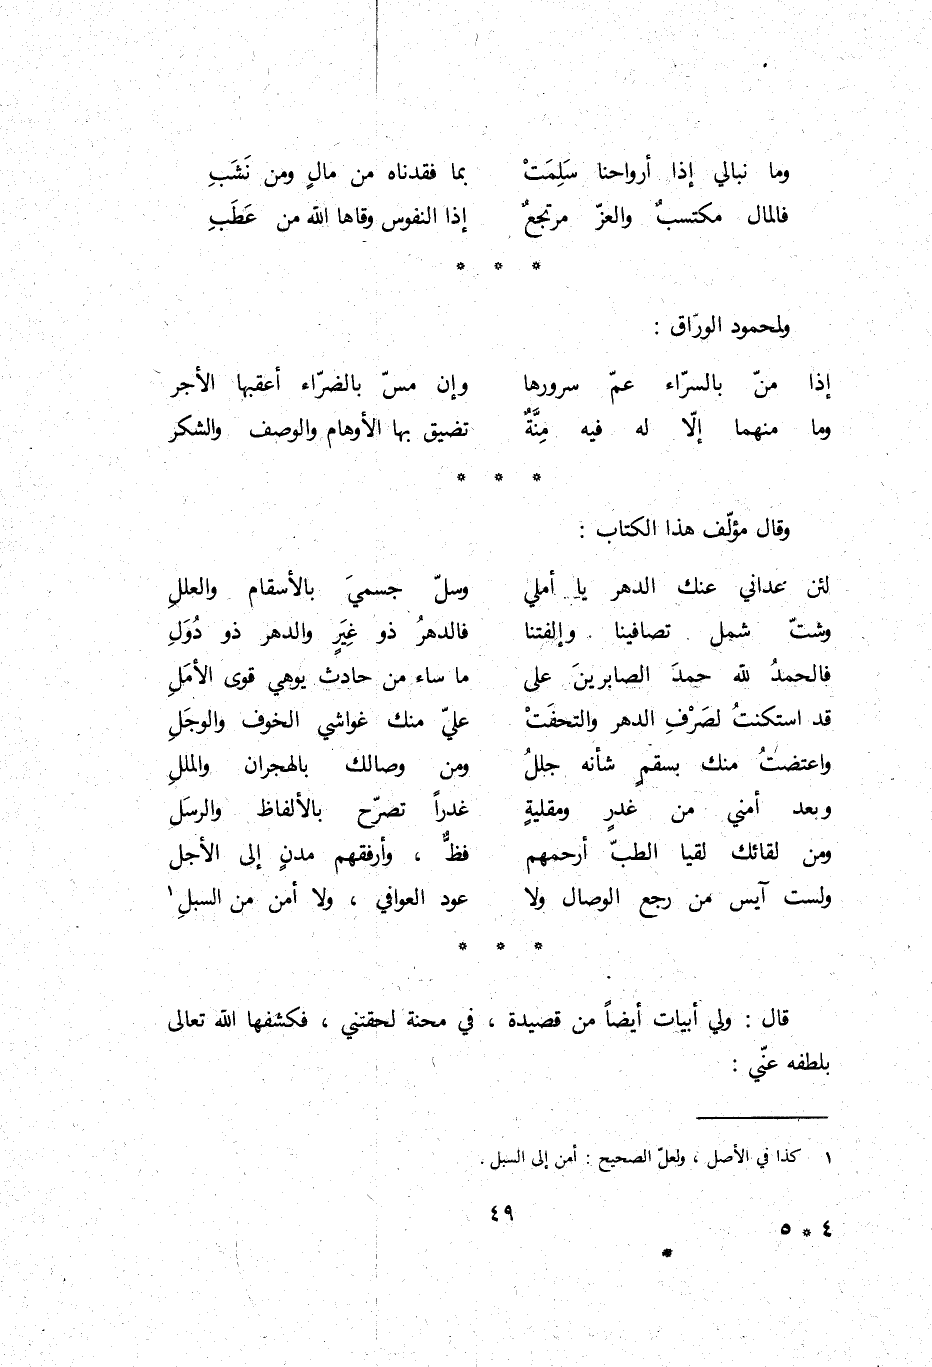 وما نبالي إذا أرواحنا سَلِمَتْ بما فقدناه من مالٍ ومن نَشَبِ
فالمال مكتسبٌ والعزّ مرتجعٌ إذا النفوس وقاها الله من عَطَبِ
* * *
ولمحمود الورّاق :
إذا منّ بالسرّاء عمّ سرورها وإن مسّ بالضرّاء أعقبها الأجر
وما منهما إلّا له فيه مِنَّةٌ تضيق بها الأوهام والوصف والشكر
* * *
وقال مؤلّف هذا الكتاب :
لئن عداني عنك الدهر يا أملي وسلّ جسميَ بالأسقام والعللِ
وشتّ شمل تصافينا وإلفتنا فالدهرُ ذو غِيَرٍ والدهر ذو دُوَلِ
فالحمدُ لله حمدَ الصابرينَ على ما ساء من حادث يوهي قوى الأمَلِ
قد استكنتُ لصَرْفِ الدهر والتحفَتْ عليّ منك غواشي الخوف والوجَلِ
واعتضتُ منك بسقمٍ شأنه جللُ ومن وصالك بالهجران والمللِ
وبعد أمني من غدرٍ ومقليةٍ غدراً تصرّح بالألفاظ والرسَل
ومن لقائك لقيا الطبّ أرحمهم فظٌّ ، وأرفقهم مدنٍ إلى الأجل
ولست آيس من رجع الوصال ولا عود العوافي ، ولا أمن من السبلِ١
* * *
قال : ولي أبيات أيضاً من قصيدة ، في محنة لحقتني ، فكشفها الله تعالى
بلطفه عنّي :
١ كذا في الأصل ، ولعلّ الصحيح : أمن إلى السبل .
٤٩
٤ * ٥